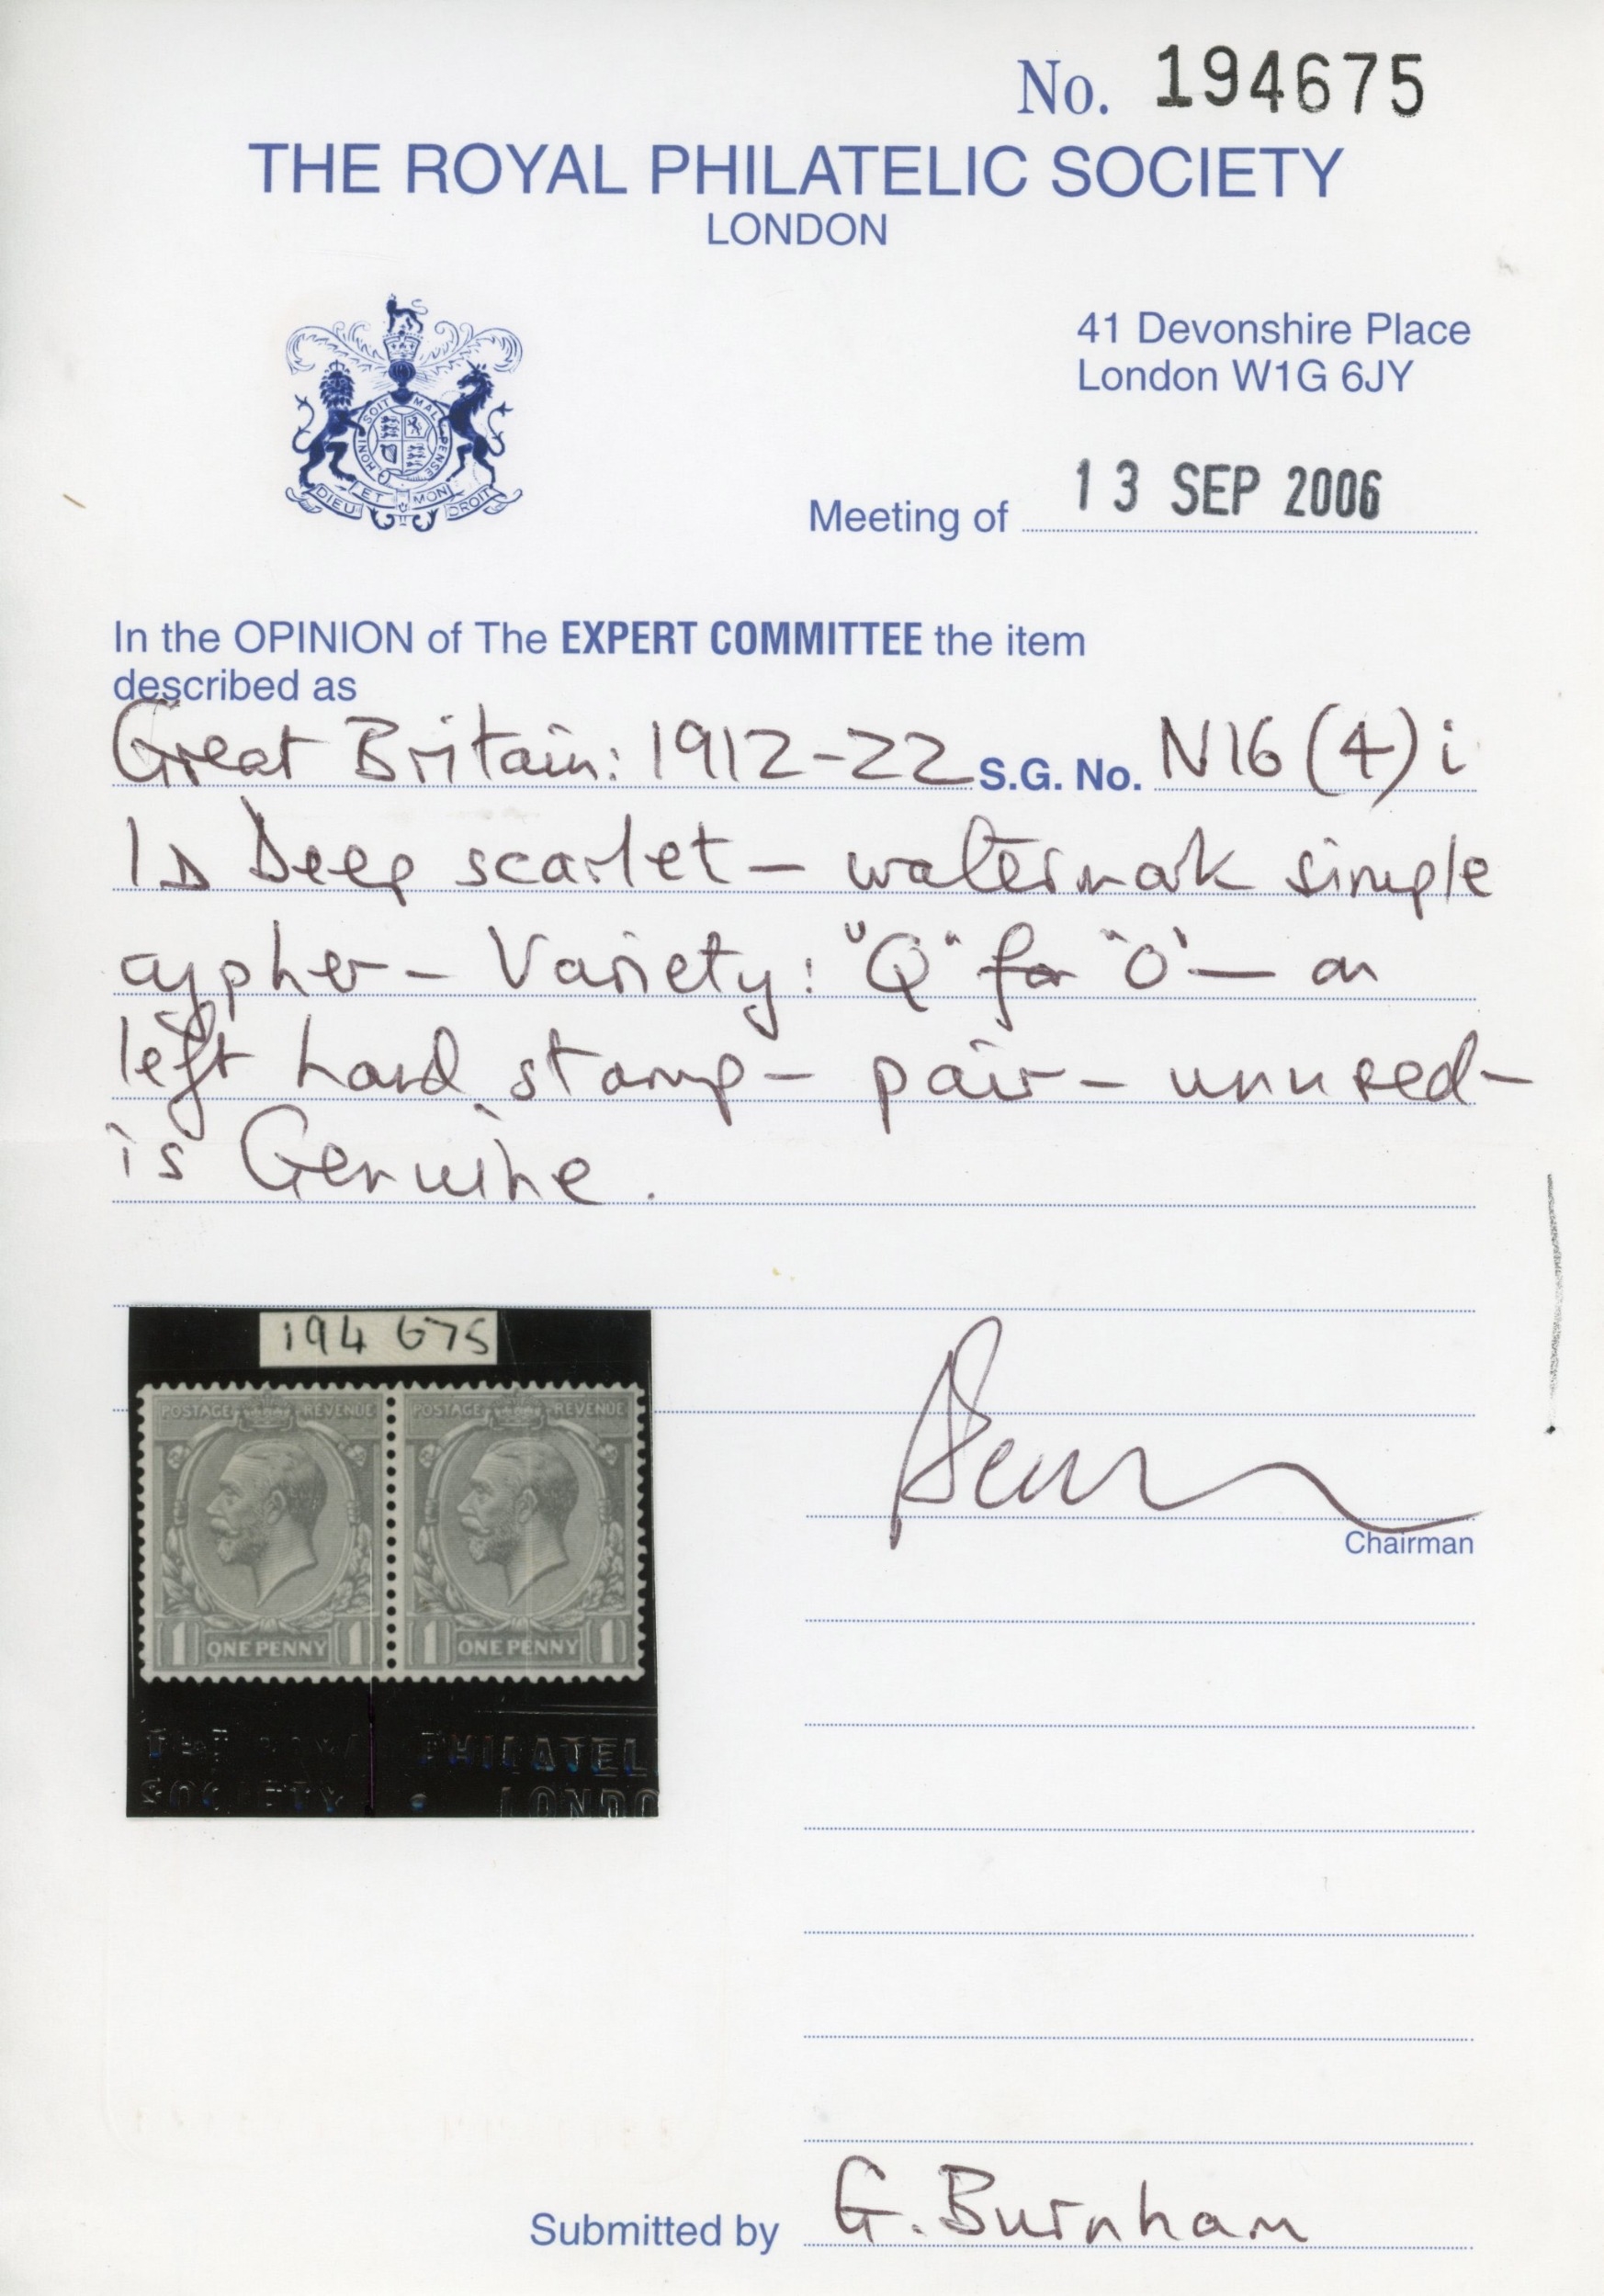 No. 194675
THE ROYAL PHILATELIC SOCIETY
LONDON
SOIT MAL
HONI PENSE
DIEU ET MON DROIT
41 Devonshire Place
London W1G 6JY
Meeting of 13 SEP 2006
In the OPINION of The EXPERT COMMITTEE the item
described as
Great Britain: 1912-22 S.G. No. N16(4)i
1D Deep scarlet - watermark simple
cypher - Variety: "Q" for "O" - on
left hand stamp - pair - unused -
is Genuine.
194 675
POSTAGE REVENUE POSTAGE REVENUE
1 ONE PENNY 1 1 ONE PENNY 1
THE PHILATEL
SOCIETY • LONDO
Chairman
Submitted by G. Burnham